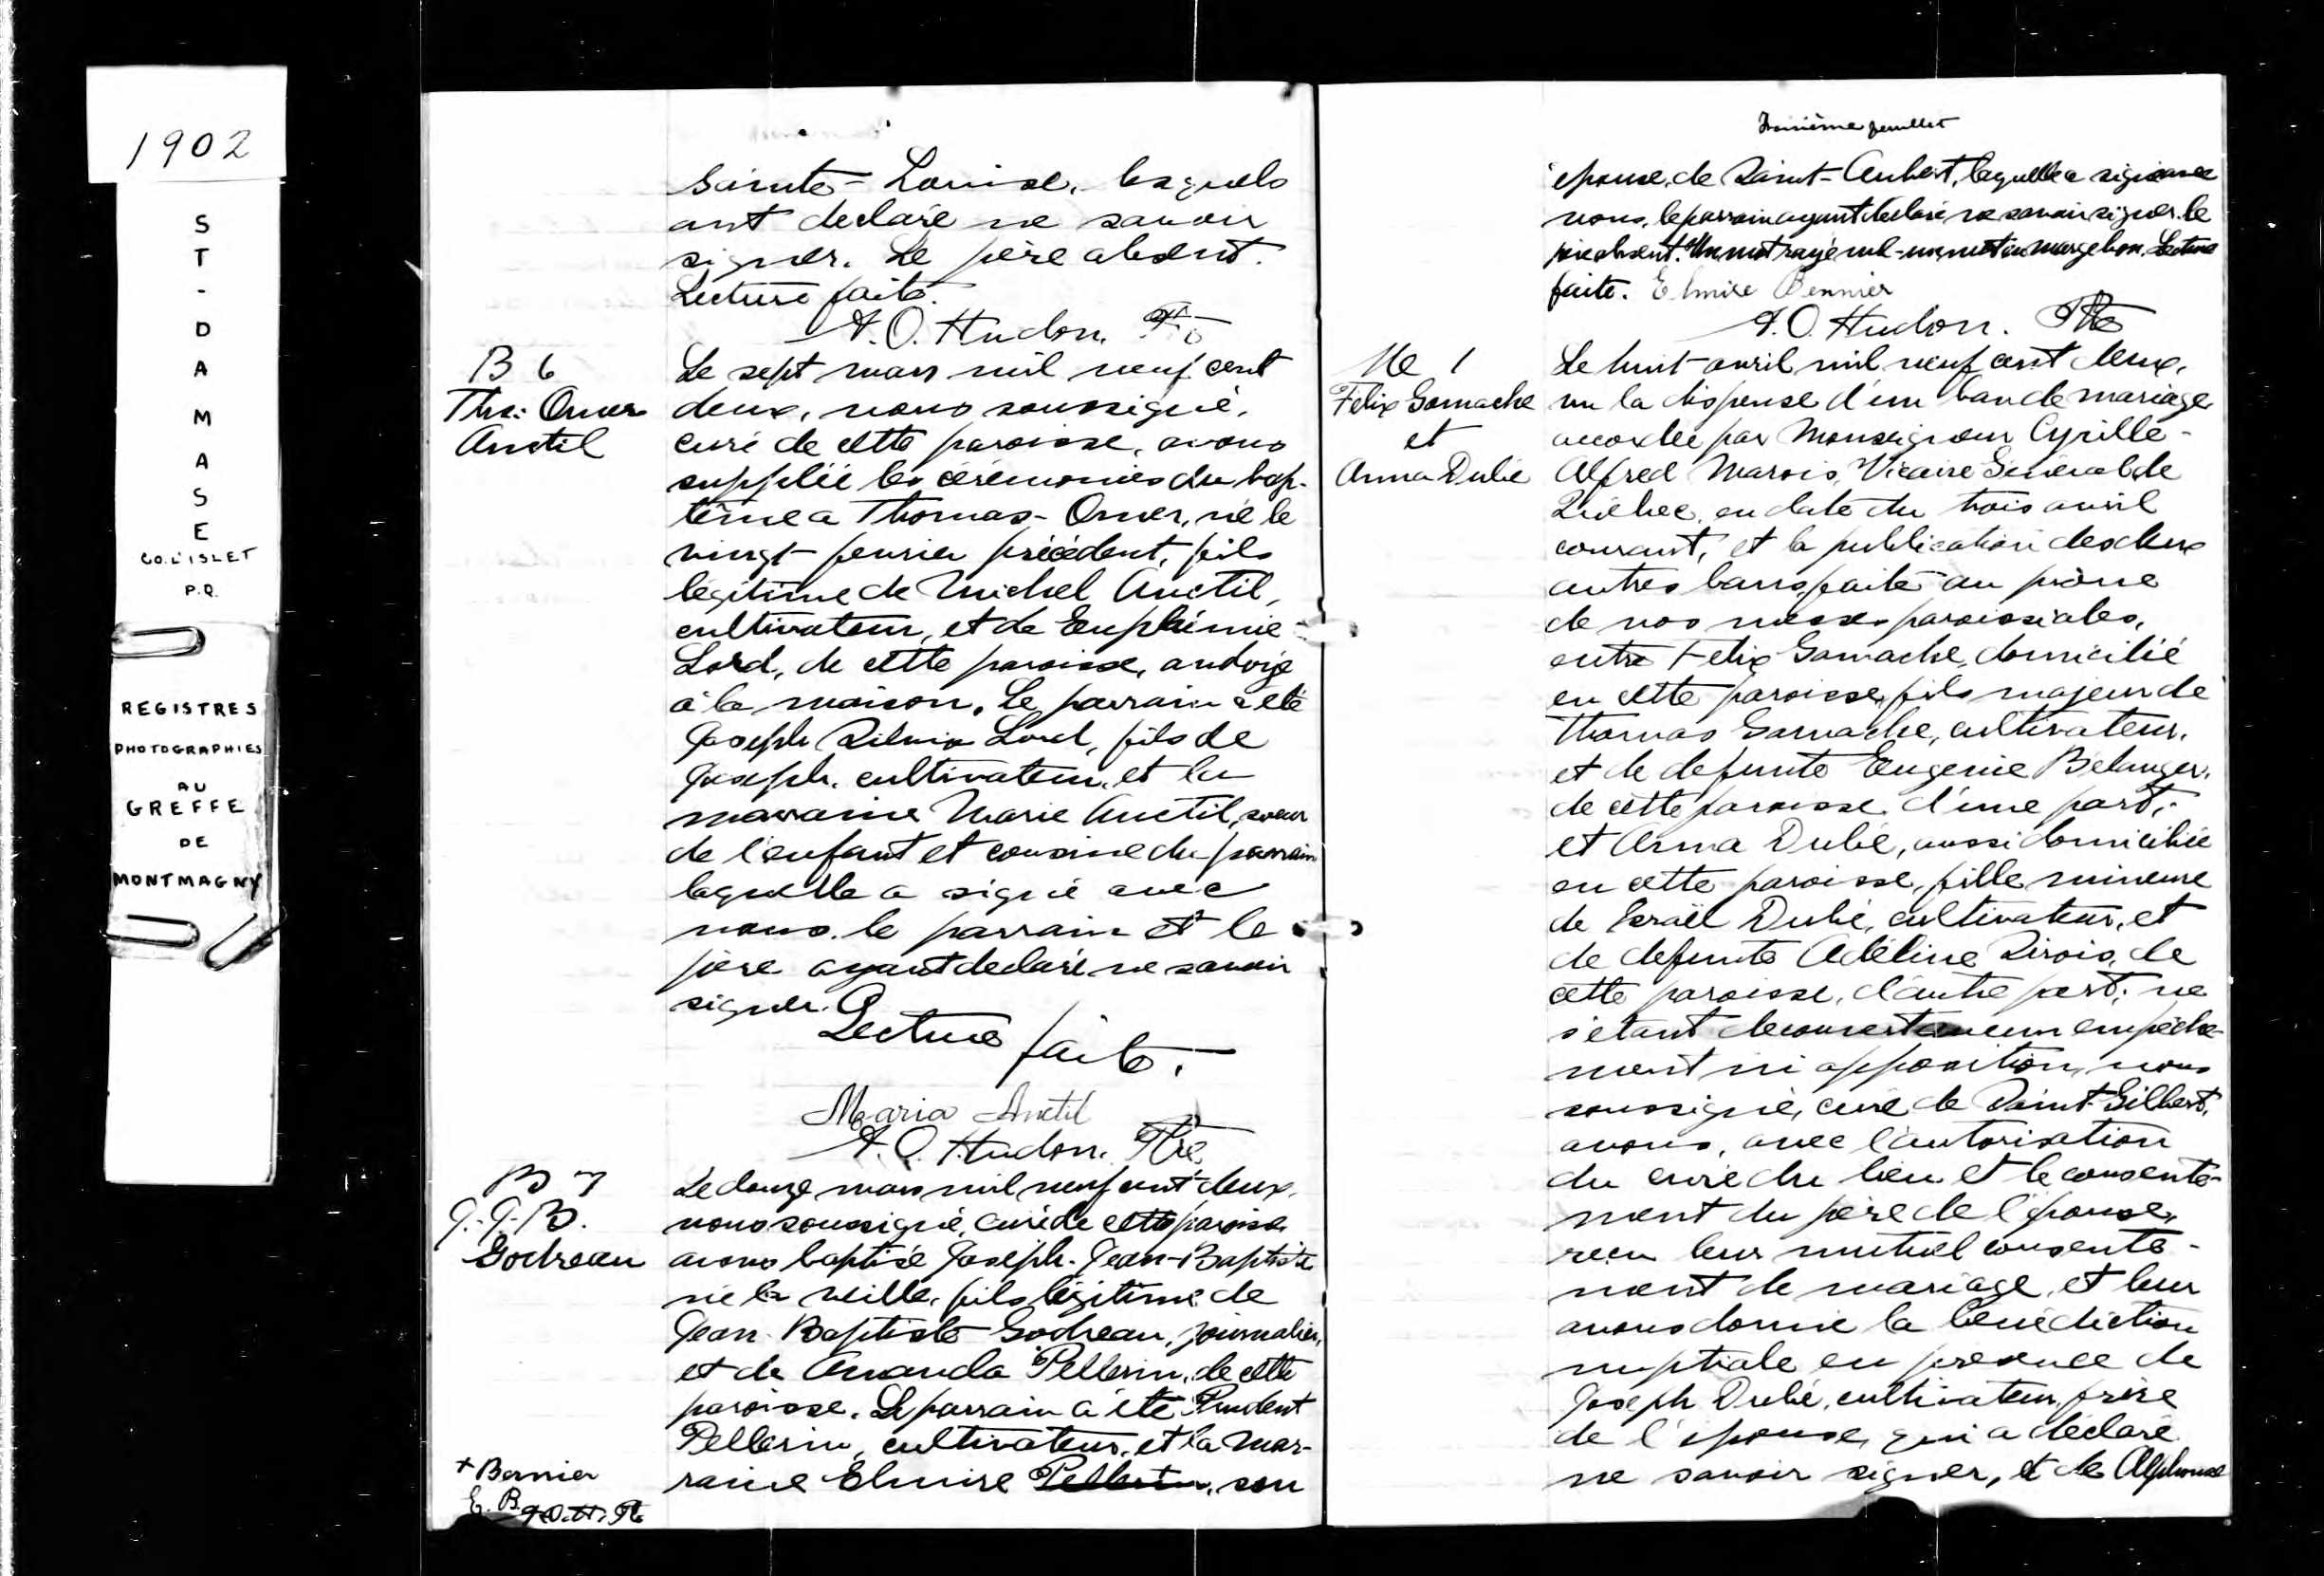 1902
S
T
-
D
A
M
A
S
E
CO. L'ISLET
P.Q.
REGISTRES
PHOTOGRAPHIES
AU
GREFFE
DE
MONTMAGNY
Sainte-Louise, lesquels
ont déclaré ne savoir
signer. Le père absent.
Lecture faite.
A. O. Hudon, Ptre
B 6
Ths: Omer
Anctil
Le sept mars mil neuf cent
deux, nous soussigné,
curé de cette paroisse, avons
supplée les cérémonies du bap-
tême a Thomas-Omer, né le
vingt fevrier précédent, fils
légitime de Michel Anctil,
cultivateur, et de Euphémie
Lord, de cette paroisse, ondoyé
à la maison. Le parrain a été
Joseph Lord, fils de
Joseph, cultivateur, et la
marraine Marie Anctil, soeur
de l'enfant et cousine du parrain
laquelle a signé avec
nous. le parrain et le
père ayant declaré ne savoir
signer.
Lecture faite.
Maria Anctil
A. O. Hudon. Ptre
B 7
J.-J.-B.
Godreau
Le douze mars mil neuf cent deux,
nous soussigné, curé de cette paroisse
avons baptisé Joseph-Jean-Baptiste
né la veille, fils légitime de
Jean-Baptiste Godreau, journalier,
et de Amanda Pellerin, de cette
paroisse. Le parrain a été Prudent
Pellerin, cultivateur, et la mar-
raine Elmire Pellerin, son
+ Bernier
E. B. A.O.H. Ptre
Troisième feuillet
épouse, de Saint-Aubert, laquelle a signé avec
nous, le parrain ayant declaré ne savoir signer. le
père absent. Un mot rayé nul - un mot en marge bon. Lecture
faite. Elmire Bernier
A. O. Hudon. Ptre
M 1
Félix Gamache
et
Anna Dubé
Le huit avril mil neuf cent deux,
vu la dispense d'un ban de mariage
accordée par Monseigneur Cyrille-
Alfred Marois, Vicaire Général de
Québec, en date du trois avril
courant, et la publication des deux
autres bans faite au prône
de nos messes paroissiales,
entre Felix Gamache, domicilié
en cette paroisse, fils majeur de
Thomas Gamache, cultivateur,
et de defunte Eugenie Bélanger,
de cette paroisse d'une part;
et Anna Dubé, aussi domiciliée
en cette paroisse, fille mineure
de Israël Dubé, cultivateur, et
de defunte Adéline Sirois, de
cette paroisse, d'autre part; ne
s'étant decouvert aucun empêche-
ment ni opposition, nous
soussigné, curé de Saint-Gilbert,
avons, avec l'autorisation
du curé du lieu et le consente-
ment du père de l'épouse,
recu leur mutuel consente-
ment de mariage, et leur
avons donné la bénédiction
nuptiale en presence de
Joseph Dubé, cultivateur, frère
de l'épouse, qui a déclaré
ne savoir signer, et de Alphonse